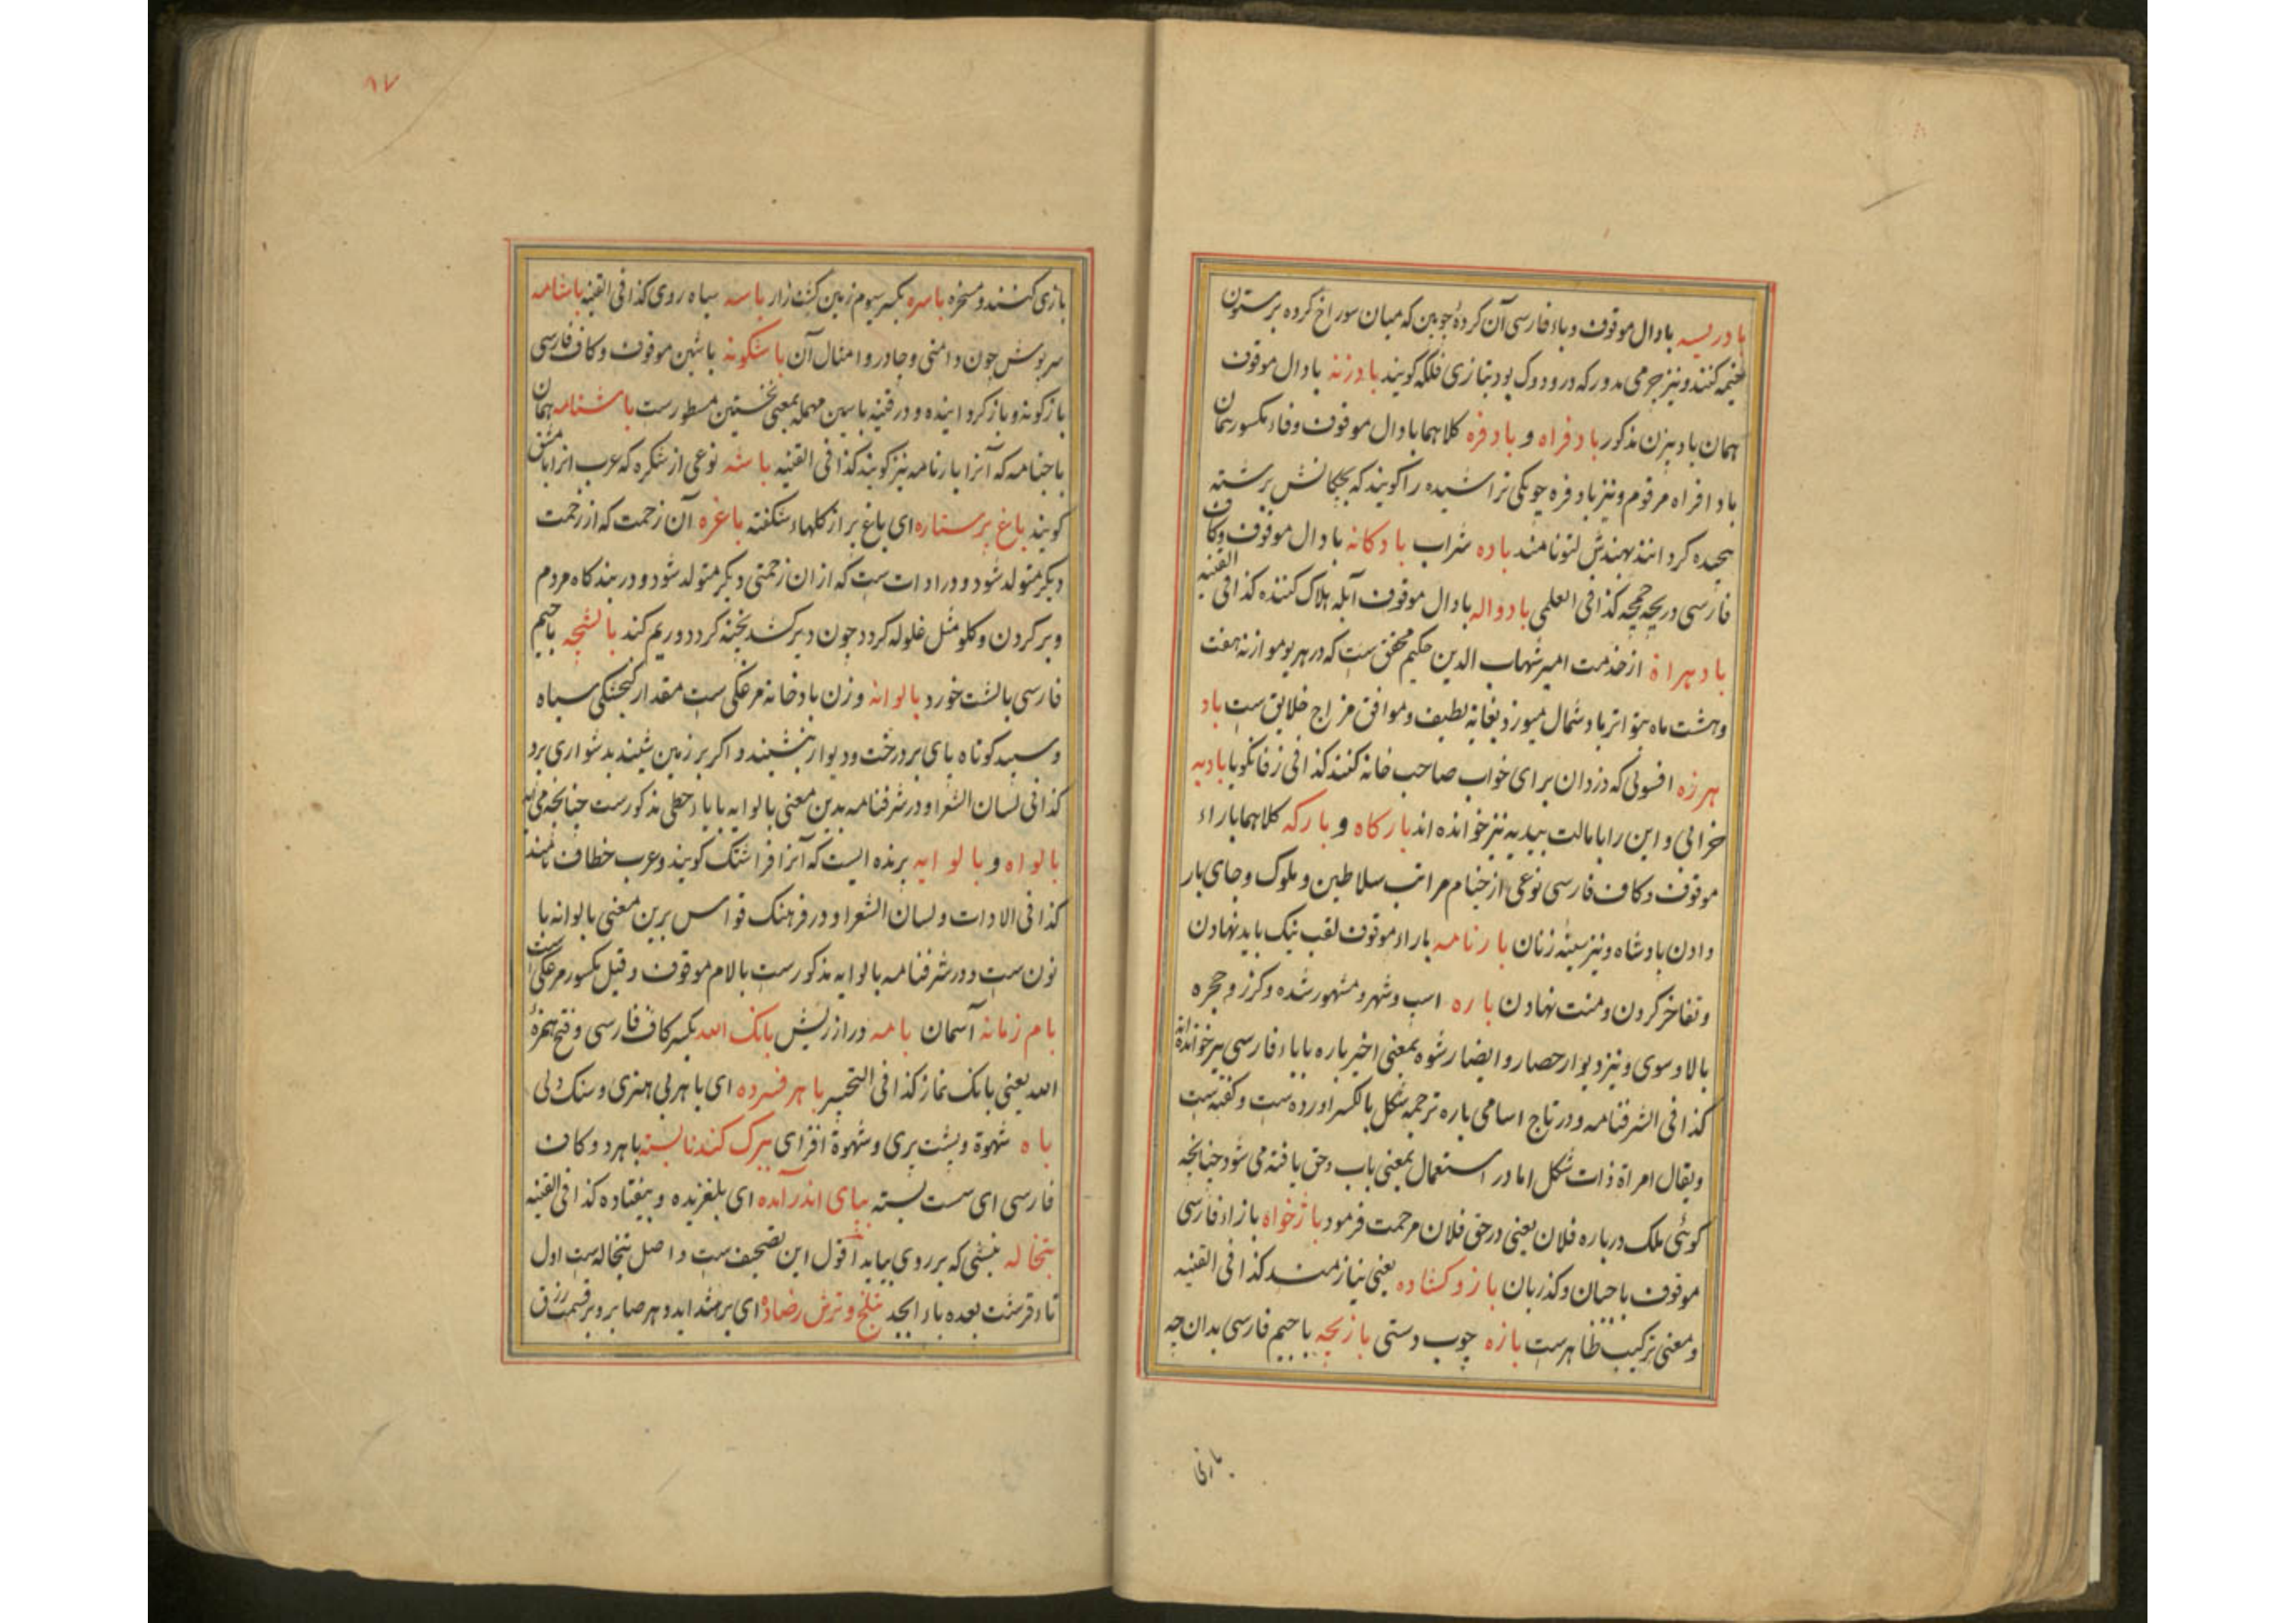 بادریسه بادال موقوف و باء فارسی آن کرده چوبین که میان سوراخ کرده بر ستون
خیمه کنند و نیز چرمی مدور که در دوک بود بتازی فلکه کویند بادزنه بادال موقوف
همان بادبیزن مذکور بادفراه و بادفره کلاهما بادال موقوف و فاء مکسور همان
باد افراه مرقوم و نیز بادفره چوبکی تراشیده را کویند که بچکانش برشته
پیچیده کردانند بهندش لتو نامند باده شراب بادکانه بادال موقوف و کاف
فارسی دریچه کذا فی العلمی بادواله بادال موقوف آبله هلاک کننده کذا فی القنیه
باد هراة از خدمت امیر شهاب الدین حکیم محقق ست که در هر یوم ازنه هفت
و هشت ماه متواتر باد شمال میوزد بغایة لطیف و موافق مزاج خلایق ست باد
هرزه افسونی که دزدان برای خواب صاحب خانه کنند کذا فی زفانکویا بادیه
خرابی و این را بامالت بیدیه نیز خوانده اند بارکاه و بارکه کلاهما باراء
موقوف و کاف فارسی نوعی از خیام مراتب سلاطین و ملوک و جای بار
دادن بادشاه و نیز سینه زنان بارنامه باراء موقوف لقب نیک باید نهادن
و تفاخر کردن و منت نهادن باره اسپ و شهر و مشهور شده و کرز و حجره
بالا و سوی و نیز دیوار حصار و ایضا رشوه بمعنی اخیر باره باباء فارسی نیز خوانده اند
کذا فی الشرفنامه و در تاج اسامی باره ترجمه شکل بالکسر اورده ست و کفته ست
ویقال امراة ذات شکل اما در استعمال بمعنی باب و حق یافته می شود چنانچه
کوئی ملک درباره فلان یعنی در حق فلان مرحمت فرمود باژخواه بازاء فارسی
موقوف باجبان و کذربان بازو کشاده یعنی نیازمند کذا فی القنیه
و معنی ترکیب ظاهرست بازه چوب دستی بازیچه باجیم فارسی بدان چه
بازی
۸۷
بازی کنند و مسخره باسره بکسر سیوم زمین کشت زار باسه سیاه روی کذا فی القنیه باشامه
سرپوش چون دامنی و چادر و امثال آن باشکونه باشین موقوف و کاف فارسی
بازکونه و باز کردانیده و در قنیه باسین مهمله بمعنی نخستین مسطورست باشنامه همان
باجنامه که آنرا بارنامه نیز کویند کذا فی القنیه باشه نوعی از شکره که عرب انرا باشق
کویند باغ پرستاره ای باغ پر از کلهاء شکفته باغره آن زحمت که از زحمت
دیکر متولد شود و در ادات ست که از ان زحمتی دیکر متولد شود و در بندکاه مردم
و بر کردن و کلو مثل غلوله کردد چون دیر کشد پخته کردد و ریم کند بالشچه باجیم
فارسی بالشت خورد بالوانه وزن بادخانه مرغکی ست مقدار کنجشکی سیاه
و سپید کوتاه پای بر درخت و دیوار بنشیند و اکر بر زمین شیند بدشواری پرد
کذا فی لسان الشعرا و در شرفنامه بدین معنی بالوایه بایاء حطی مذکورست چنانچه می اید
بالواه و بالوایه پرنده ایست که آنرا فراشتک کویند و عرب خطاف نامند
کذا فی الادات و لسان الشعرا و در فرهنک قواس برین معنی بالوانه با
نون ست و در شرفنامه بالوایه مذکورست بالام موقوف و قیل مکسور مرغکی است
بام زمانه آسمان بامه دراز ریش بانک الله بکسر کاف فارسی و فتح همزه
الله یعنی بانک نماز کذا فی التحبیر باهر فسرده ای باهر بی هنری و سنک دلی
باه شهوة و پشت پری و شهوة افزای ببرک کندنا بسته باهر دو کاف
فارسی ای سست بسته بپای اندر آمده ای بلغزیده و بیفتاده کذا فی القنیه
بتخاله تبشی که بر روی بیاید اقول این تصحیف ست و اصل تبخاله ست اول
تاء قرشت بعده باء ابجد بتلخ و ترش رضاده ای بر شداید دهر صابر و بر قسمت رزق